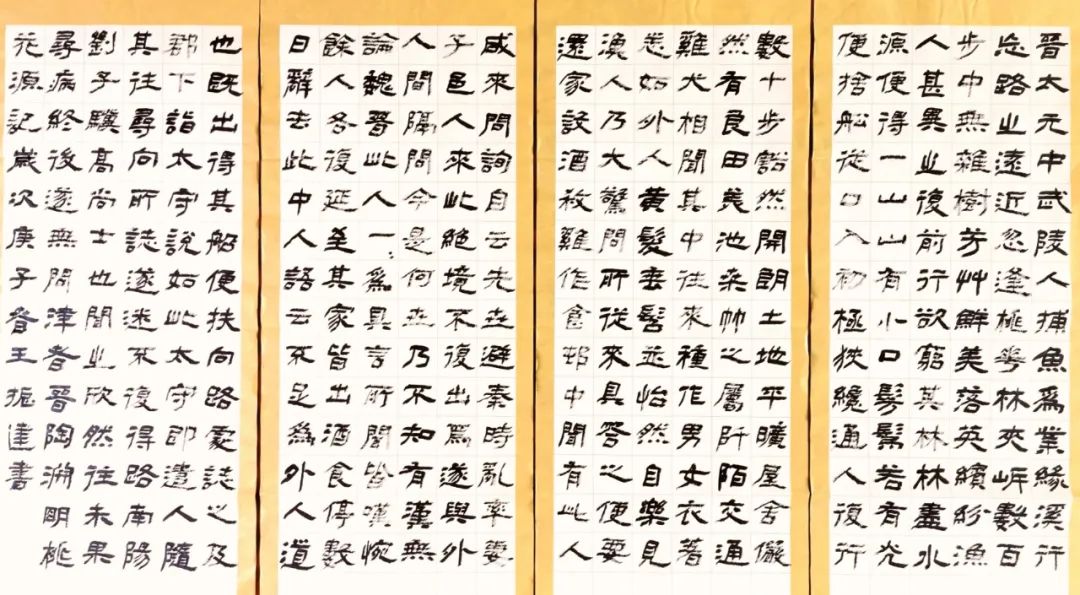 晉太元中武陵人捕魚爲業緣溪行
忘路之遠近忽逢桃華林夾岸數百
步中無雜樹芳艸鮮美落英繽紛漁
人甚異之復前行欲窮其林林盡水
源便得一山山有小口髣髴若有光
便捨船從口入初極狹纔通人復行
數十步豁然開朗土地平曠屋舍儼
然有良田美池桒竹之屬阡陌交通
雞犬相聞其中往來種作男女衣著
悉如外人黃髮垂髫並怡然自樂見
漁人乃大驚問所從來具答之便要
還家設酒殺雞作食邨中聞有此人
咸來問詢自云先世避秦時亂率妻
子邑人來此絕境不復出焉遂與外
人間隔問今是何世乃不知有漢無
論魏晉此人一〻爲具言所聞皆嘆惋
餘人各復延至其家皆出酒食停數
日辭去此中人語云不足爲外人道
也既出得其船便扶向路處誌之及
郡下詣太守說如此太守即遣人隨
其往尋向所誌遂迷不復得路南陽
劉子驥高尚士也聞之欣然往未果
尋病終後遂無問津者晉陶淵明桃
花源記歲次庚子春王振達書